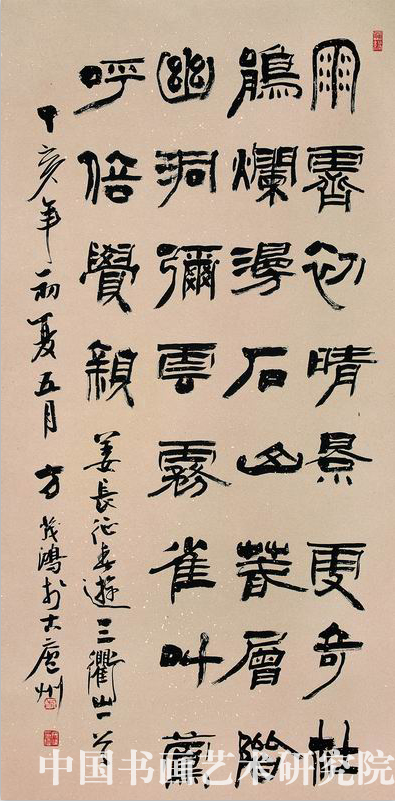 雨霽初晴景更奇杜
鵑爛漫石山叢層
幽洞彌雲霧雀叫
呼倍覺親
姜長征春遊三衢山一首
丁亥年初夏五月方茂鴻於古廬州
中国书画艺术研究院